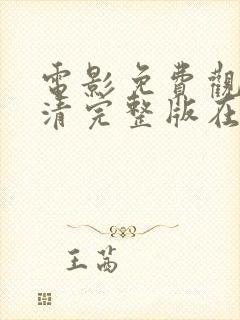 電影免費觀
清完整版在
王茜